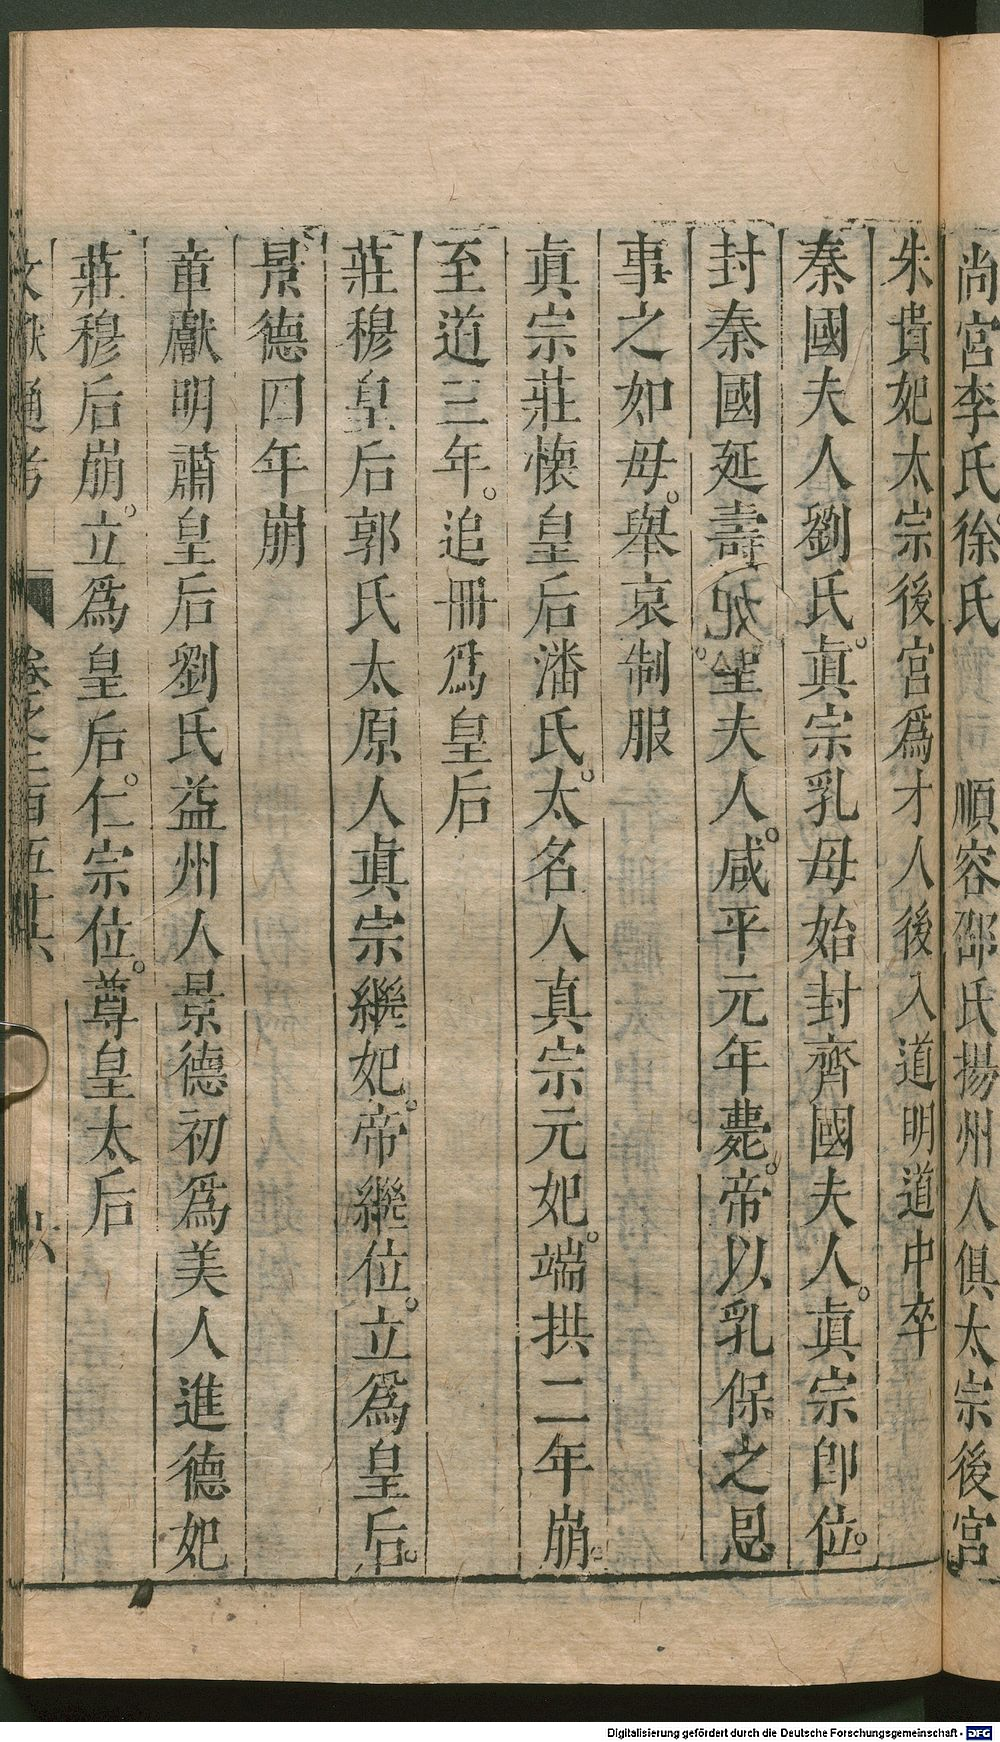 尚宮李氏徐氏 順容邵氏揚州人俱太宗後宮
朱貴妃太宗後宮爲才人後入道明道中卒
秦國夫人劉氏。眞宗乳母始封齊國夫人。眞宗卽位。
封秦國延壽聖夫人。咸平元年薨。帝以乳保之恩
事之如母。舉哀制服
眞宗莊懷皇后潘氏。太名人真宗元妃。端拱二年崩。
至道三年。追冊爲皇后
莊穆皇后郭氏太原人眞宗繼妃。帝繼位。立爲皇后。
景德四年崩
章獻明肅皇后劉氏益州人景德初爲美人進德妃
莊穆后崩。立爲皇后。仁宗位。尊皇太后
文獻通考 卷之二百五十六 六
Digitalisierung gefördert durch die Deutsche Forschungsgemeinschaft - DFG